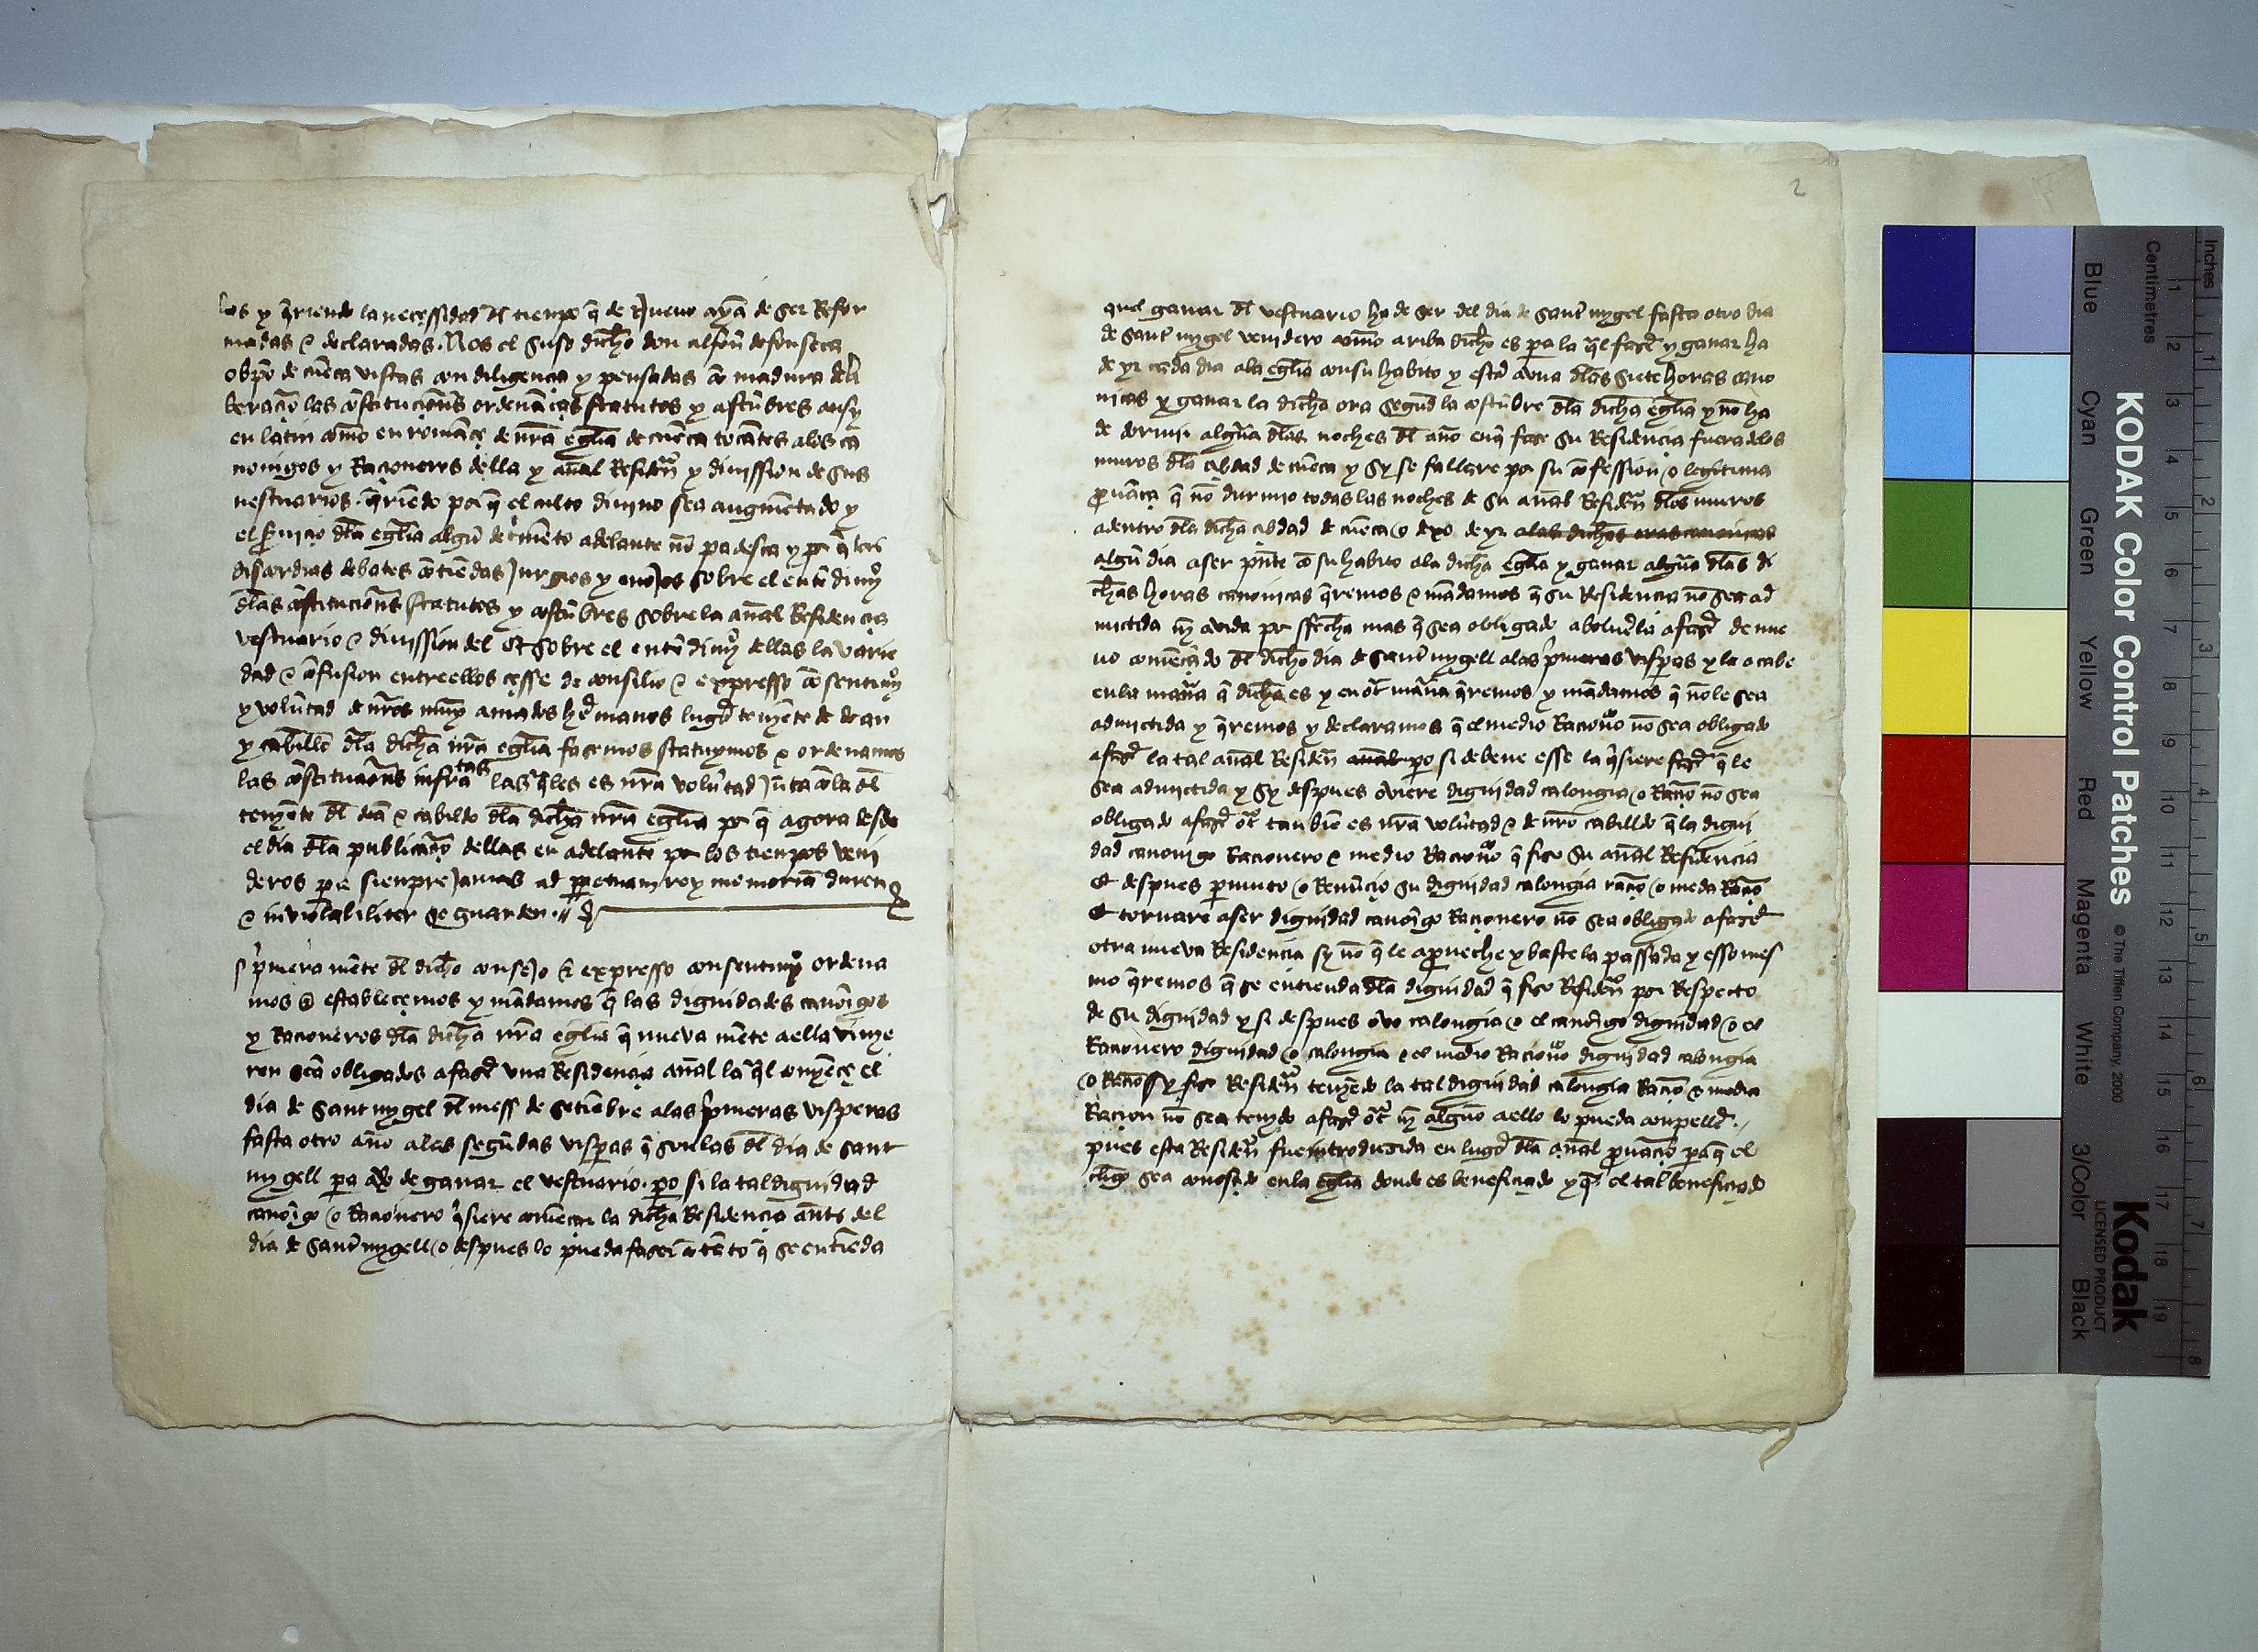 los y q̃riendo la necessidad dl̃ tienpo q̃ de nuevo ayã de ser Refor
madas & declaradas. Nos el suso dicho don alfoñ de fonseca
obpõ de cuẽca vistas con diligençia y pensadas cõ madura deli
beraçiõ las cõstituçiõns ordenãças statutos y costũbres ansy
en latin com̃o en romãçe de nr̃a egl̃ia de cuẽca tocãtes a los ca
nonigos y Raçioneros della y añal Residẽn y divission de sus
vestuarios. q̃riẽdo por q̃ el culto divino sea augmẽtado y
el s̃viçio dl̃a egl̃ia algũ detrimẽto adelante nõ padesca y por q̃
discordias debates cõtiẽdas Jurgios y enoJos sobre el entẽdimyº
dl̃as cõstituçiõns statutos y costũbres sobre la añal Residençia
vestuario & division del Et sobre el entẽdimyº dellas la varie
dad & cõfusion entre ellos çesse de consilio & expresso cõsentimyº
y volũtad de nr̃os muy amados her̃manos lugar̃ tenyẽte de dean
y cabillº dl̃a dicha nr̃a egl̃ia façemos statuymos & ordenamos
las cõstituçiõns infratas las q̃les es nr̃a volũtad Jũta cõ la dl̃
tenyẽte dl̃ deã & cabildo dl̃a dicha nr̃a egl̃ia por q̃ agora desde
el dia dl̃a publicaçiõ dellas en adelante por los tienpos veni
deros por sienpre Jamas ad perpetuam rey memoriã duren
& inviolabiliter se guarden.
pᵒmera mẽte dl̃ dicho conseJo & expresso consentimyº ordena
mos & estableçemos y mãdamos q̃ las dignidades canõigos
y Raçioneros dl̃a dicha nr̃a egl̃ia q̃ nueva mẽte a ella vinye
ren seã obligados a faser̃ una Residençia añal la q̃l comyẽçe el
dia de Sant mygel dl̃ mess de setiẽbre a las pᵒmeras visperas
fasta otro año a las segũdas visperas q̃ son las dl̃ dia de Sant
mygell para aver de ganar el vestuario. pero si la tal dignidad
canõigo o Raçionero q̃siere comẽçar la dicha Residençia ãnte del
dia de Sant mygell o despues lo pueda faser cõ tãto q̃ se entiẽda
2
quel ganar dl̃ vestuario ha de ser del dia de Sant mygel fasta otro dia
de Sant mygel venidero com̃o ariba dicho es para la q̃l faser̃ y ganar ha
de yr cada dia a la egl̃ia con su habito y estar̃ a una dl̃as siete horas cano
nicas y ganar la dicha ora segũd la costũbre dl̃a dicha egl̃ia y nõ ha
de dormir algũa dl̃as noches dl̃ año en q̃ fase su Residençia fuera de los
muros dl̃a cibdad de cuẽca y sy se fallare por su cõfession o legitima
provãça q̃ nõ durmio todas las noches de su añal Residẽn dl̃os muros
adentro dl̃a dicha cibdad de cuẽca o dexo de yr a las dichas oras canonicas
algũ dia a ser pñte cõ su habito a la dicha egl̃ia y ganar algũa dl̃as di
chas horas canonicas q̃remos & mãdamos q̃ su Residencia nõ sea ad
mitida nĩ avida por fecha mas q̃ sea obligado a bolver̃la a faser̃ de nue
vo comẽçãdo dl̃ dicho dia de Sant mygell a las pᵒmeras visperas y la acabe
en la manera q̃ dicha es y en otra manera q̃remos y mãdamos q̃ nõ le sea
admitida y q̃remos y declaramos q̃ el medio Raçionº nõ sea obligado
a faser̃ la tal añal Residẽn pero si de bene esse la q̃siere faser̃ q̃ le
sea admitida y sy despues oviere dignidad calongia o Raçiõ nõ sea
obligado a faser̃ otra tanbiẽ es nr̃a volũtad & de nr̃o cabilldo q̃ la digni
dad canonigo Raçionero & medio Raçionº q̃ fiso su añal Residençia
Et despues permuto o Renũçio su dignidad calongia raçiõ o media Raçiõ
Et tornare a ser dignidad canõigo Raçionero nõ sea obligado a faser̃
otra nueva Residençia sy nõ q̃ le aproveche y baste la passada y esso mes
mo q̃remos q̃ se entienda dl̃a dignidad q̃ fiso Residẽn por Respecto
de su dignidad y si despues ovo calongia o el canõigo dignidad o el
Raçionero dignidad o calongia o el medio Raçionº dignidad calongia
o Raçiõ sy fiso Residẽn tenyẽdo la tal dignidad calongia Raçiõ o media
Raçion nõ sea tenydo a faser̃ otra nĩ algũo a ello lo pueda conpeller̃.
pues esta Residẽn fue introdusida en lugar̃ dl̃a añal provaçiõ para q̃ el
cligo sea conosçido en la egl̃ia donde es benefiçiado y q̃ el tal benefiçiado
KODAK Color Control Patches
© The Tiffen Company, 2000
Kodak
LICENSED PRODUCT
Blue Cyan Green Yellow Red Magenta White 3/Color Black
Inches 1 2 3 4 5 6 7 8
Centimetres 1 2 3 4 5 6 7 8 9 10 11 12 13 14 15 16 17 18 19